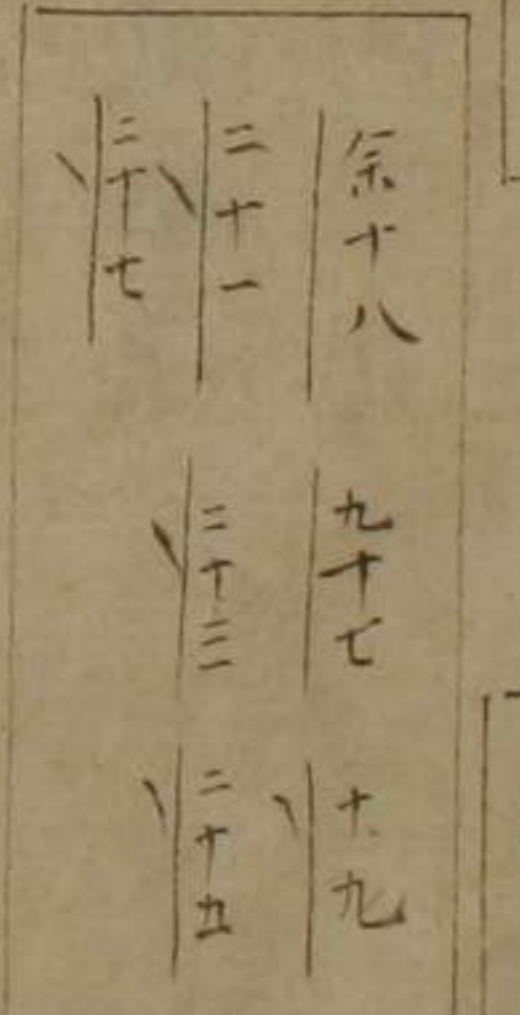 余十八
九十七
十九
二十一
二十三
二十五
二十七